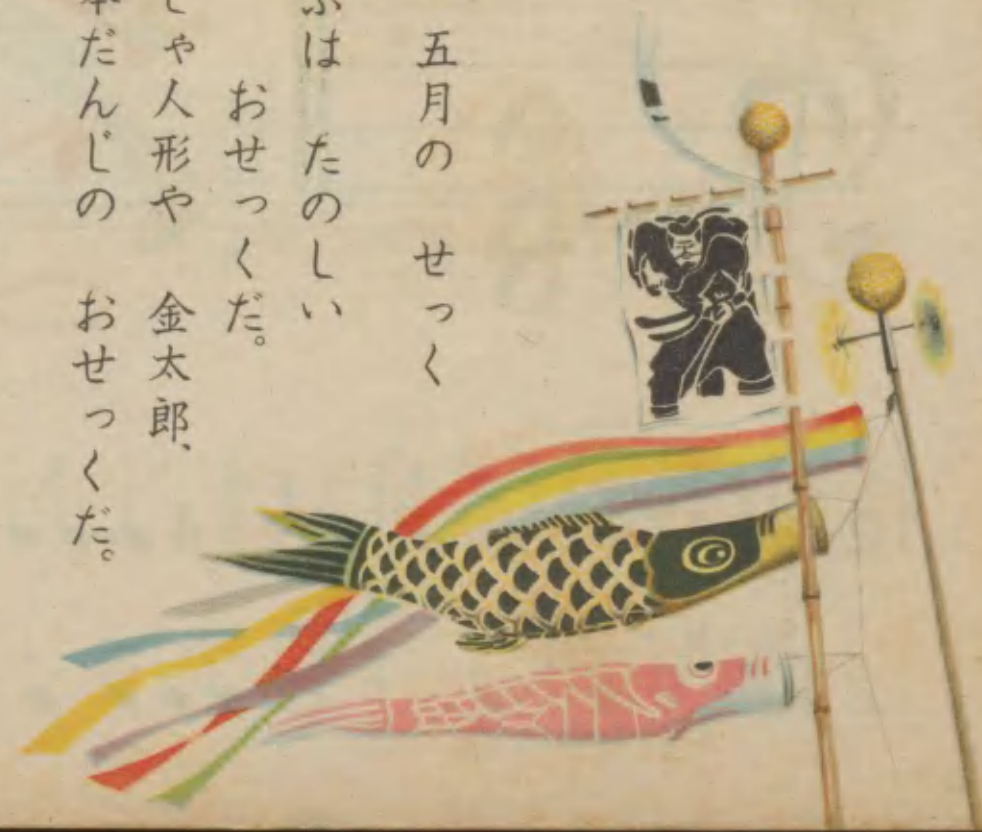 五月の せっく
は たのしい
おせっくだ。
ゃ人形や 金太郎、
本だんじの おせっくだ。